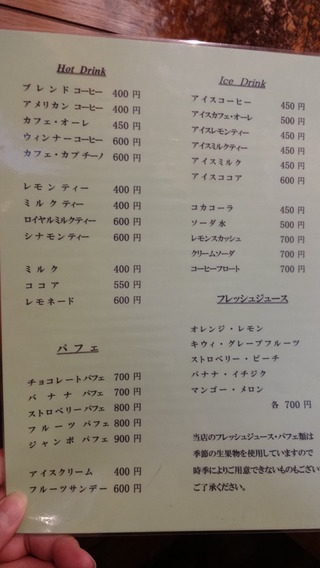 Hot Drink
ブレンドコーヒー 400 円
アメリカン コーヒー 400 円
カフェ・オーレ 450 円
ウィンナーコーヒー 600 円
カフェ・カプチーノ 600 円
レモンティー 400 円
ミルクティー 400 円
ロイヤルミルクティー 600 円
シナモンティー 600 円
ミルク 400 円
ココア 550 円
レモネード 600 円
パフェ
チョコレートパフェ 700 円
バナナ パフェ 700 円
ストロベリーパフェ 800 円
フルーツパフェ 800 円
ジャンボパフェ 900 円
アイスクリーム 400 円
フルーツサンデー 600 円
Ice Drink
アイスコーヒー 450 円
アイスカフェ・オーレ 500 円
アイスレモンティー 450 円
アイスミルクティー 450 円
アイスミルク 450 円
アイスココア 600 円
コカコーラ 450 円
ソーダ水 500 円
レモンスカッシュ 700 円
クリームソーダ 700 円
コーヒーフロート 700 円
フレッシュジュース
オレンジ・レモン
キウィ・グレープフルーツ
ストロベリー・ピーチ
バナナ・イチジク
マンゴー・メロン
各 700 円
当店のフレッシュジュース・パフェ類は
季節の生果物を使用していますので
時季によりご用意できないものもござい
ご了承ください。